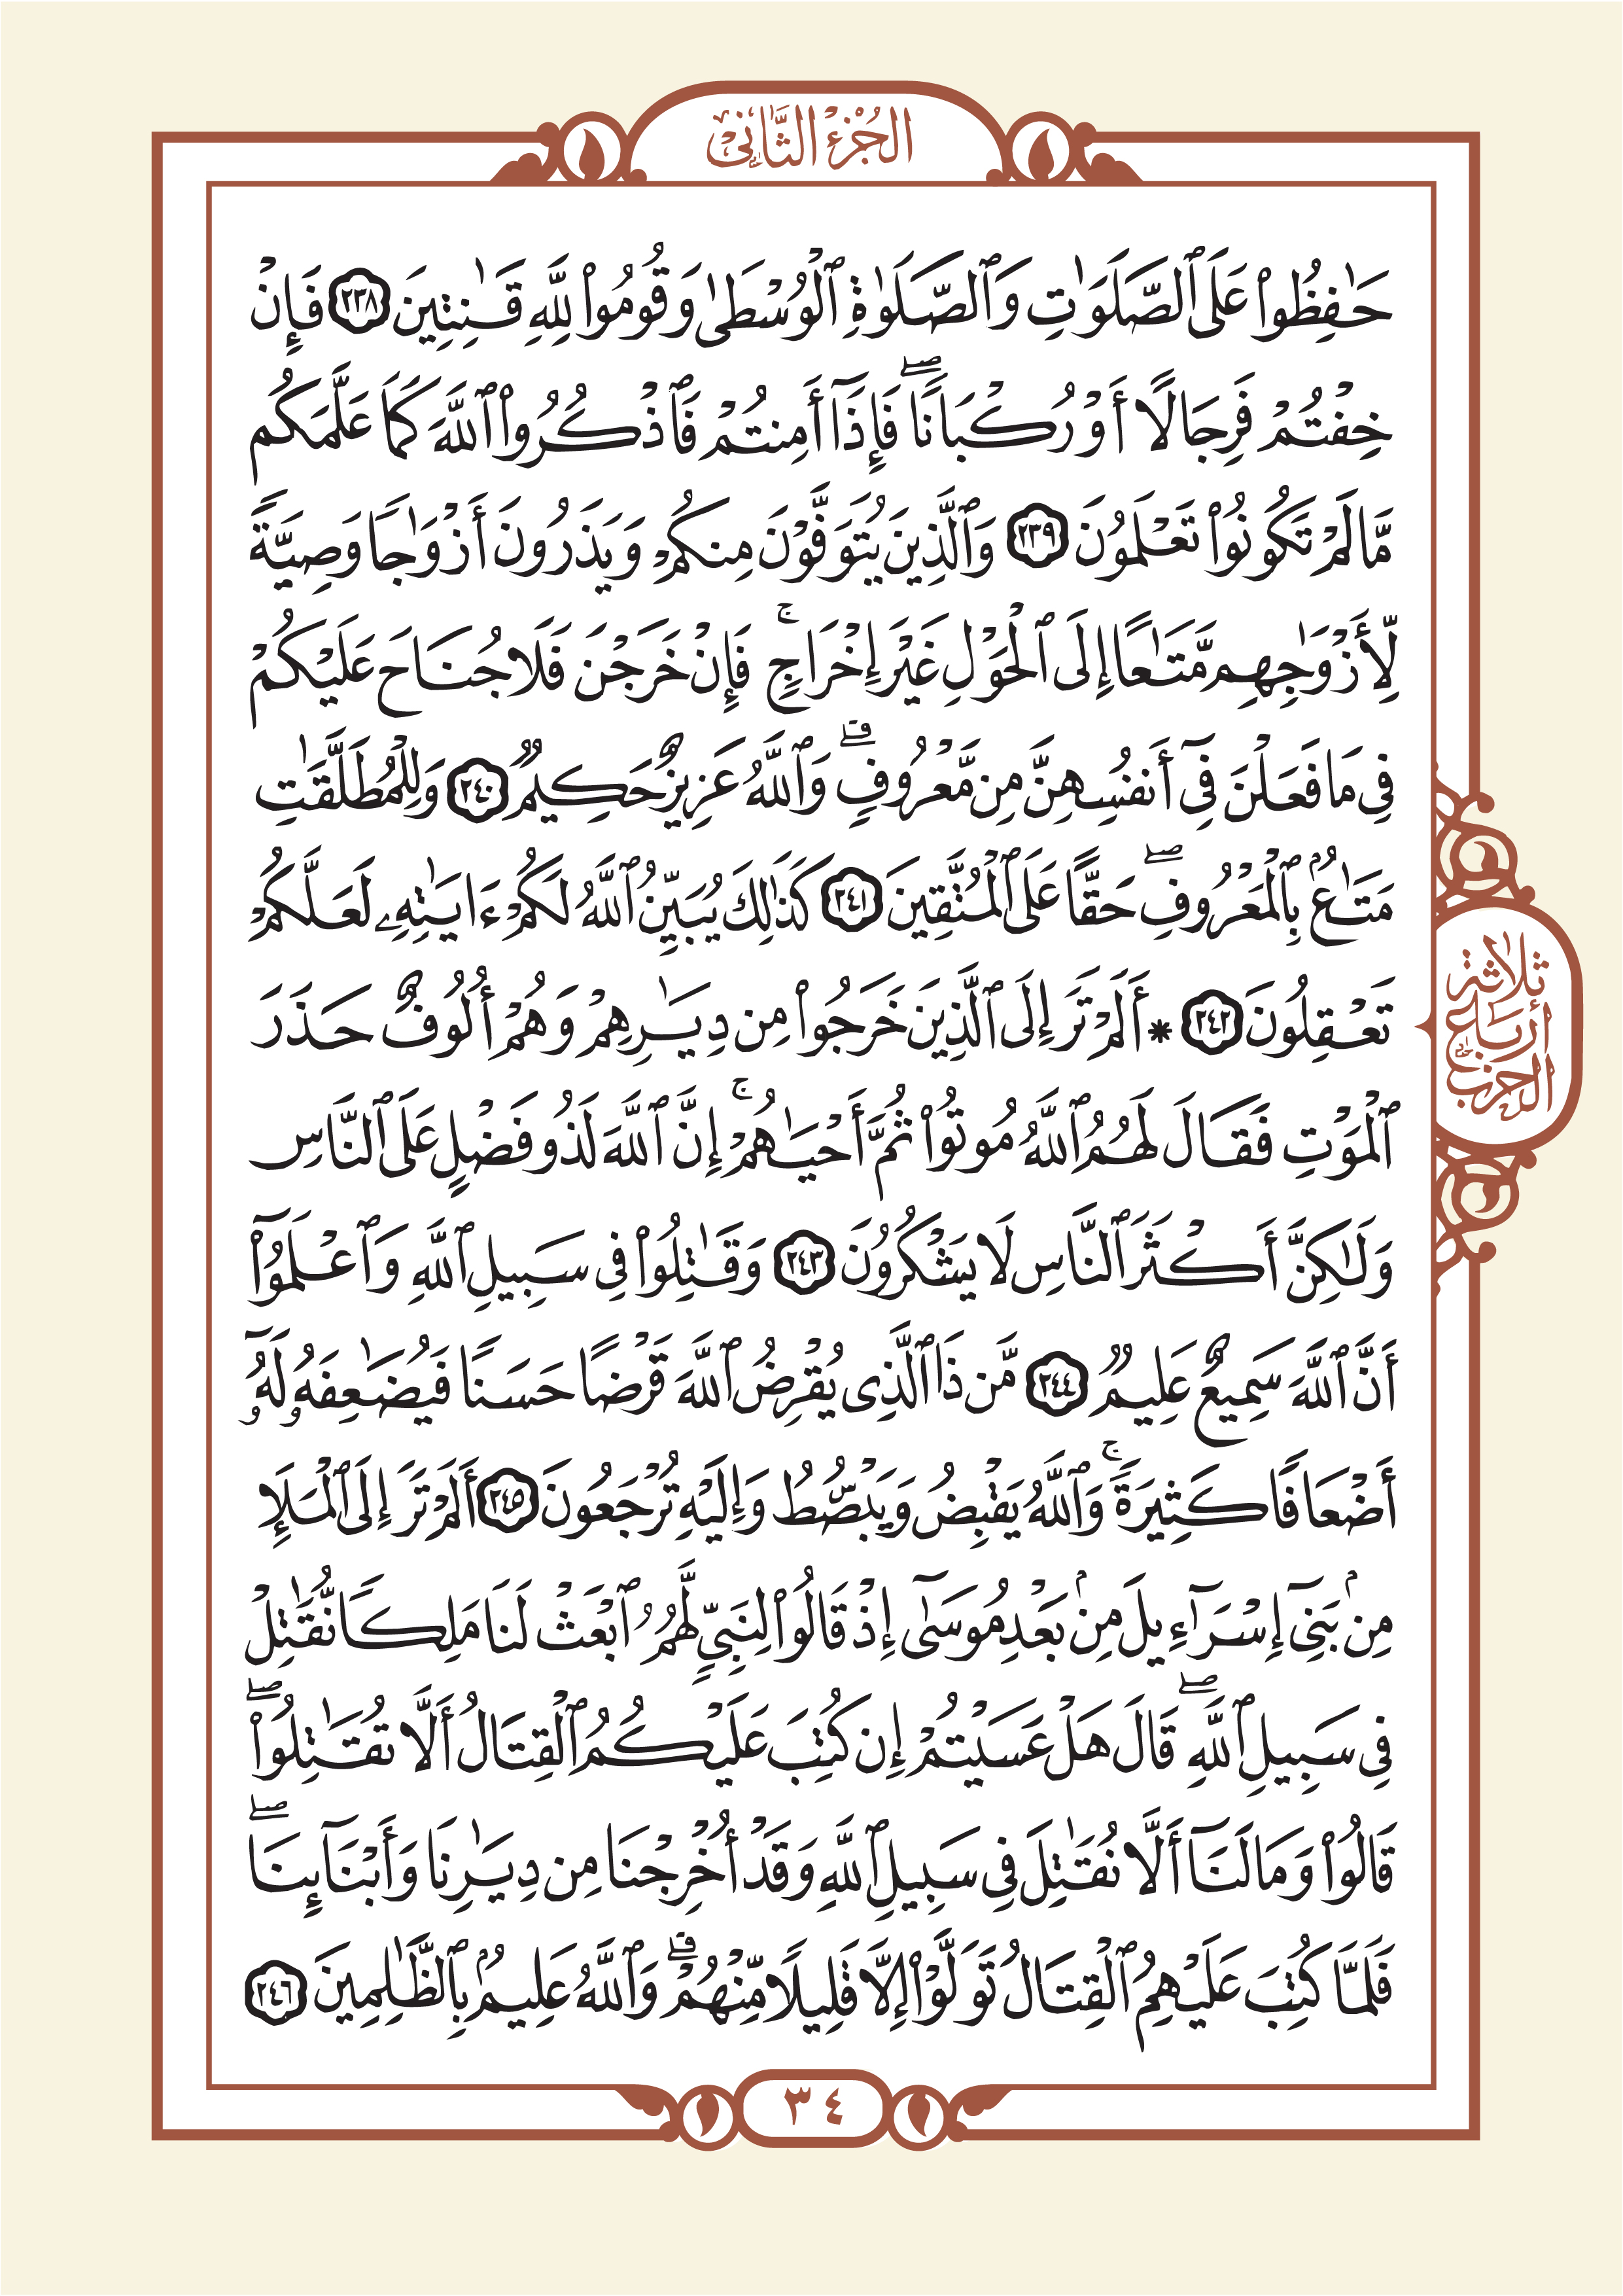 الجُزْءُ الثَّانِي
حَٰفِظُوا۟ عَلَى ٱلصَّلَوَٰتِ وَٱلصَّلَوٰةِ ٱلْوُسْطَىٰ وَقُومُوا۟ لِلَّهِ قَٰنِتِينَ ٢٣٨ فَإِنْ
خِفْتُمْ فَرِجَالًا أَوْ رُكْبَانًا ۖ فَإِذَآ أَمِنتُمْ فَٱذْكُرُوا۟ ٱللَّهَ كَمَا عَلَّمَكُم
مَّا لَمْ تَكُونُوا۟ تَعْلَمُونَ ٢٣٩ وَٱلَّذِينَ يُتَوَفَّوْنَ مِنكُمْ وَيَذَرُونَ أَزْوَٰجًا وَصِيَّةً
لِّأَزْوَٰجِهِم مَّتَٰعًا إِلَى ٱلْحَوْلِ غَيْرَ إِخْرَاجٍ ۚ فَإِنْ خَرَجْنَ فَلَا جُنَاحَ عَلَيْكُمْ
فِى مَا فَعَلْنَ فِىٓ أَنفُسِهِنَّ مِن مَّعْرُوفٍ ۗ وَٱللَّهُ عَزِيزٌ حَكِيمٌ ٢٤٠ وَلِلْمُطَلَّقَٰتِ
مَتَٰعٌۢ بِٱلْمَعْرُوفِ ۖ حَقًّا عَلَى ٱلْمُتَّقِينَ ٢٤١ كَذَٰلِكَ يُبَيِّنُ ٱللَّهُ لَكُمْ ءَايَٰتِهِۦ لَعَلَّكُمْ
تَعْقِلُونَ ٢٤٢ * أَلَمْ تَرَ إِلَى ٱلَّذِينَ خَرَجُوا۟ مِن دِيَٰرِهِمْ وَهُمْ أُلُوفٌ حَذَرَ
ٱلْمَوْتِ فَقَالَ لَهُمُ ٱللَّهُ مُوتُوا۟ ثُمَّ أَحْيَٰهُمْ ۚ إِنَّ ٱللَّهَ لَذُو فَضْلٍ عَلَى ٱلنَّاسِ
وَلَٰكِنَّ أَكْثَرَ ٱلنَّاسِ لَا يَشْكُرُونَ ٢٤٣ وَقَٰتِلُوا۟ فِى سَبِيلِ ٱللَّهِ وَٱعْلَمُوٓا۟
أَنَّ ٱللَّهَ سَمِيعٌ عَلِيمٌ ٢٤٤ مَّن ذَا ٱلَّذِى يُقْرِضُ ٱللَّهَ قَرْضًا حَسَنًا فَيُضَٰعِفَهُۥ لَهُۥٓ
أَضْعَافًا كَثِيرَةً ۚ وَٱللَّهُ يَقْبِضُ وَيَبْصُۜطُ وَإِلَيْهِ تُرْجَعُونَ ٢٤٥ أَلَمْ تَرَ إِلَى ٱلْمَلَإِ
مِنۢ بَنِىٓ إِسْرَٰٓءِيلَ مِنۢ بَعْدِ مُوسَىٰٓ إِذْ قَالُوا۟ لِنَبِىٍّ لَّهُمُ ٱبْعَثْ لَنَا مَلِكًا نُّقَٰتِلْ
فِى سَبِيلِ ٱللَّهِ ۖ قَالَ هَلْ عَسَيْتُمْ إِن كُتِبَ عَلَيْكُمُ ٱلْقِتَالُ أَلَّا تُقَٰتِلُوا۟ ۖ
قَالُوا۟ وَمَا لَنَآ أَلَّا نُقَٰتِلَ فِى سَبِيلِ ٱللَّهِ وَقَدْ أُخْرِجْنَا مِن دِيَٰرِنَا وَأَبْنَآئِنَا ۖ
فَلَمَّا كُتِبَ عَلَيْهِمُ ٱلْقِتَالُ تَوَلَّوْا۟ إِلَّا قَلِيلًا مِّنْهُمْ ۗ وَٱللَّهُ عَلِيمٌۢ بِٱلظَّٰلِمِينَ ٢٤٦
ثلاثة
أرباع
الحزب
٣٤